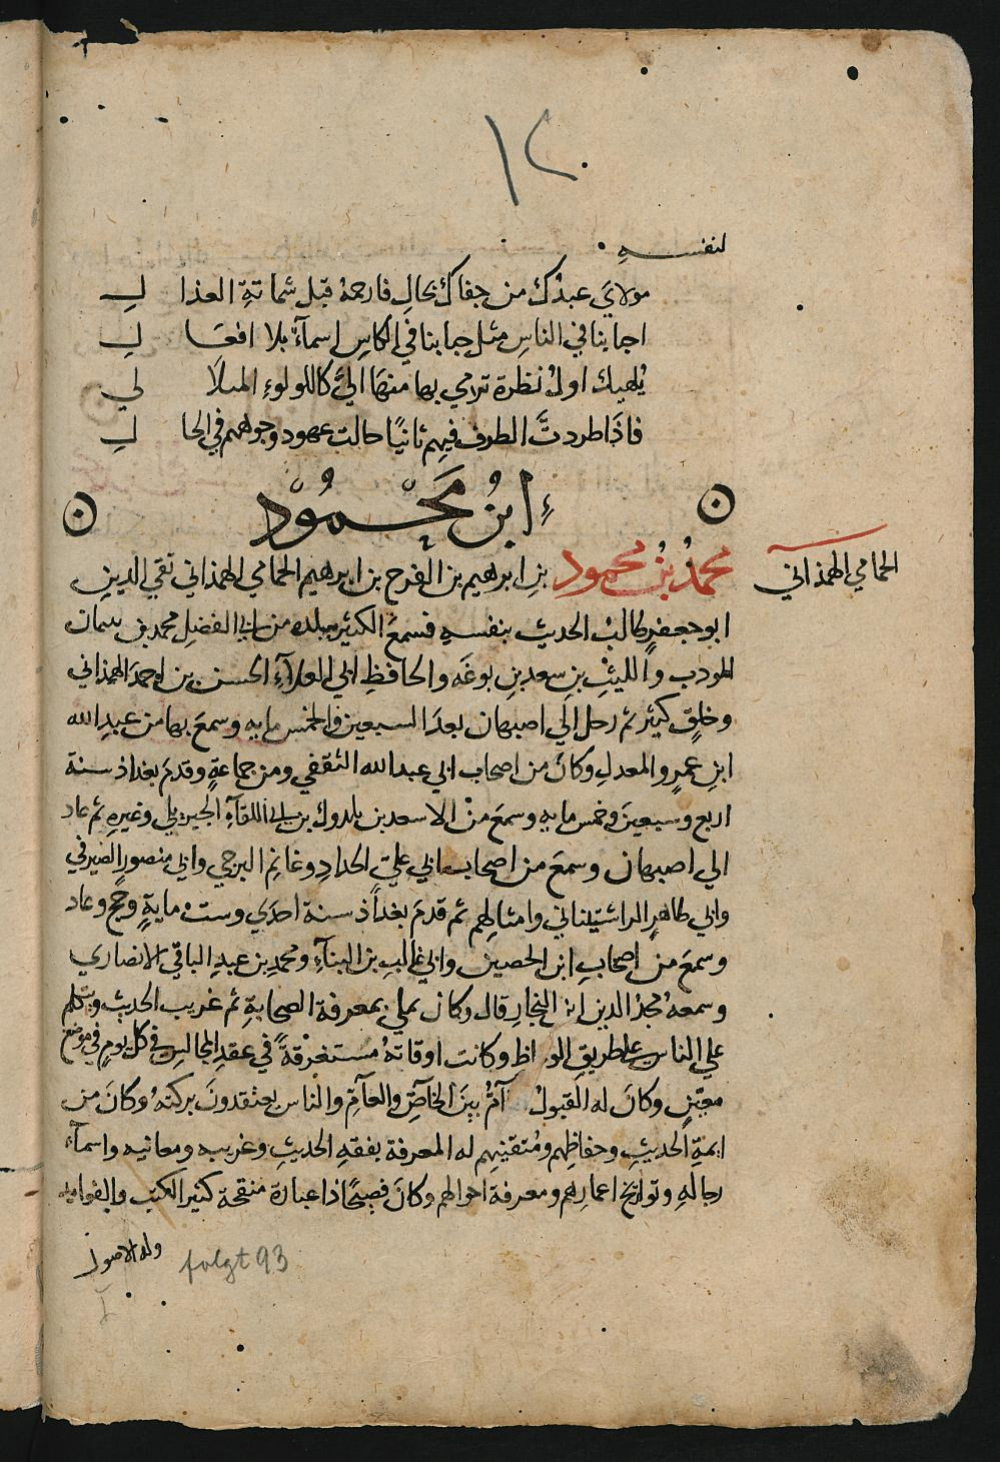 ١٢
لنفسه
مولاي عبدك من جفاك بحال فارحمه قبل شماتة العذا ل
احبابنا في الناس مثل حبابنا في الكاس اسمآء بلا افعا ل
يلهيك اول نظرة ترمي بها منها الي كاللولوء المتلا لي
فاذا طردت الطرف فيهم ثانيا حالت عهود وجوههم في الحا ل
ابن محمود
الحمامي الهمذاني
محمد بن محمود بن ابرهيم بن الفرح بن ابرهيم الحمامي الهمذاني تقي الدين
ابو جعفر طالب الحديث بنفسه فسمع الكثير ببلده من ابي الفضل محمد بن بنيمان
المودب والليث بن سعد بن بوغه والحافظ ابي العلآء الحسن بن احمد الهمذاني
وخلق كثير ثم رحل الي اصبهان بعد السبعين والخمس مايه وسمع بها من عبد الله
ابن عمر والمعدل وكان من اصحاب ابي عبد الله الثقفي ومن جماعة وقدم بغداذ سنة
اربع وسبعين وخمس مايه وسمع من الاسعد بن يلدرك بن ابي اللقآء الجبريلي وغيره ثم عاد
الي اصبهان وسمع من اصحاب ابي علي الحداد وغانم البرجي وابي منصور الصيرفي
وابي طاهر الراشتيناني وامثالهم ثم قدم بغداذ سنة احدي وست ماية وحج وعاد
وسمع من اصحاب ابن الحصين وابي غالب بن البنآء ومحمد بن عبد الباقي الانصاري
وسمعه مجد الدين ابن النجار قال وكان يملي بمعرفة الصحابة ثم غريب الحديث ويتكلم
علي الناس علي طريق الو اظ وكانت اوقاته مستغرقة في عقد المجالس في كل يوم في موضع
معين وكان له القبول آم بين الخآص والعآم والناس يعتقدون بركته وكان من
ايمة الحديث وحفاظهم ومتقنيهم له المعرفة بفقه الحديث وغريبه ومعانيه واسمآء
رجاله وتواريخ اعمارهم ومعرفة احوالهم وكان فصيحا ذا عبارة منقحة كثير الكتب والفوايد
وله الاصول
folgt 93